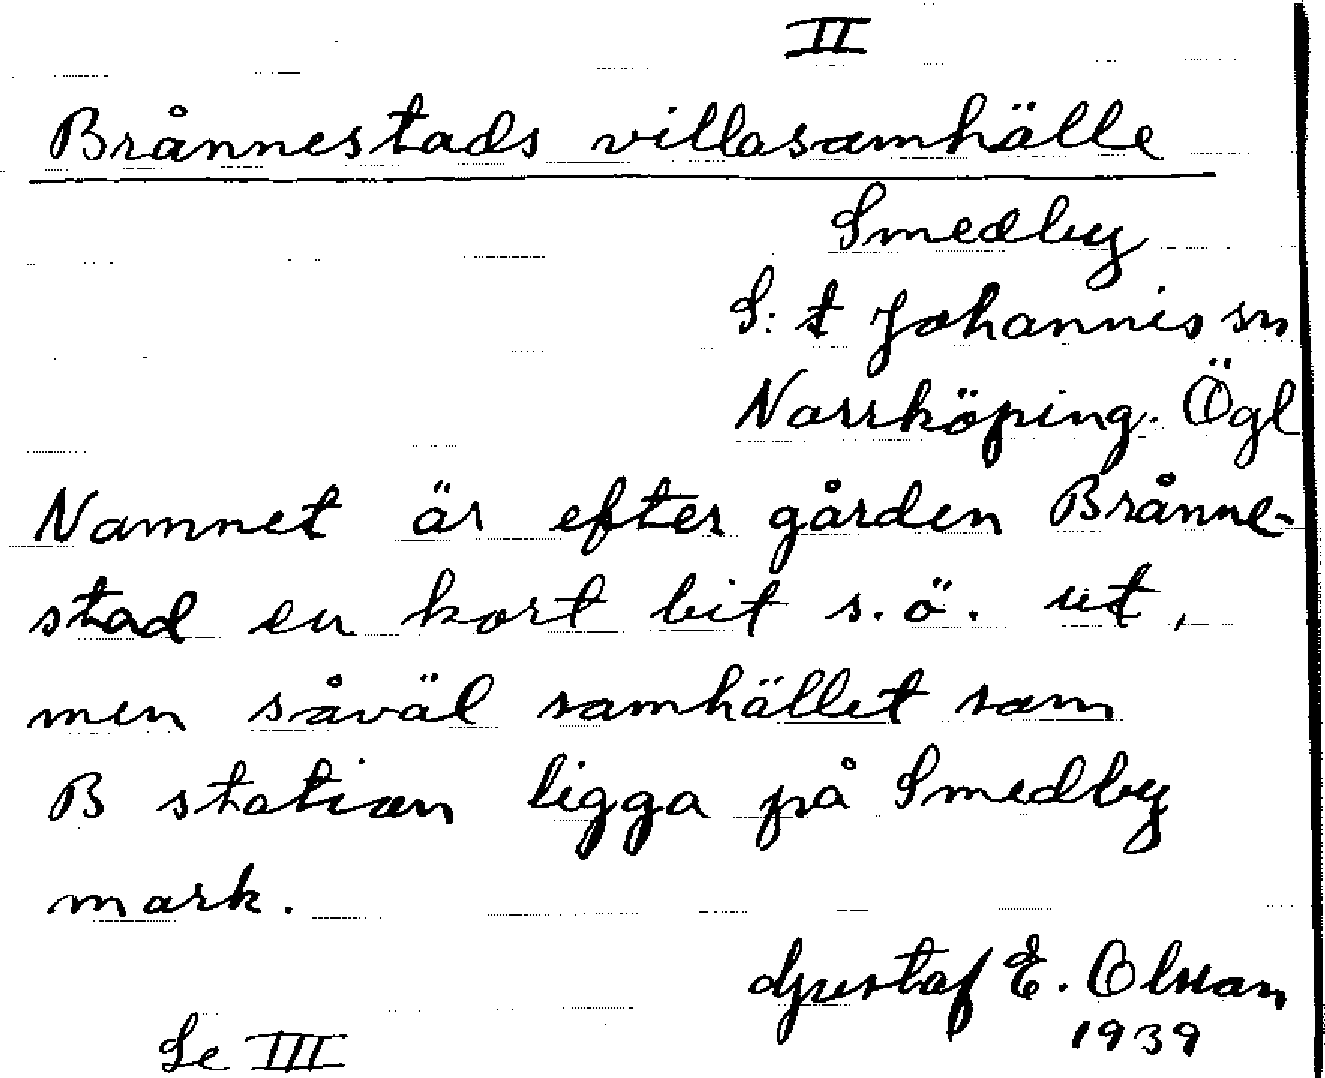 II
Brånnestads villasamhälle
Smedby
S:t Johannis sn
Norrköping. Ögl
Namnet är efter gården Brånne-
stad en kort bit s.ö. ut,
men såväl samhället som
B station ligga på Smedby
mark.
Gustaf E. Olsson
1939
Se III